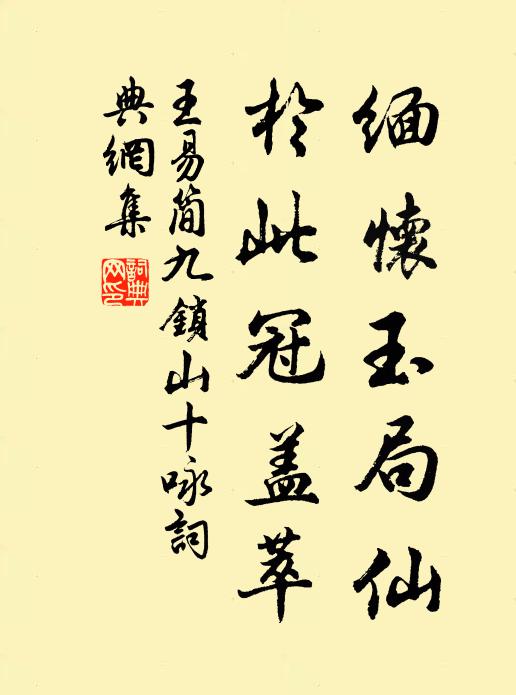 緬懷玉局仙
於此冠蓋萃
王易简九鎖山十咏詞
典網集
詞典网印